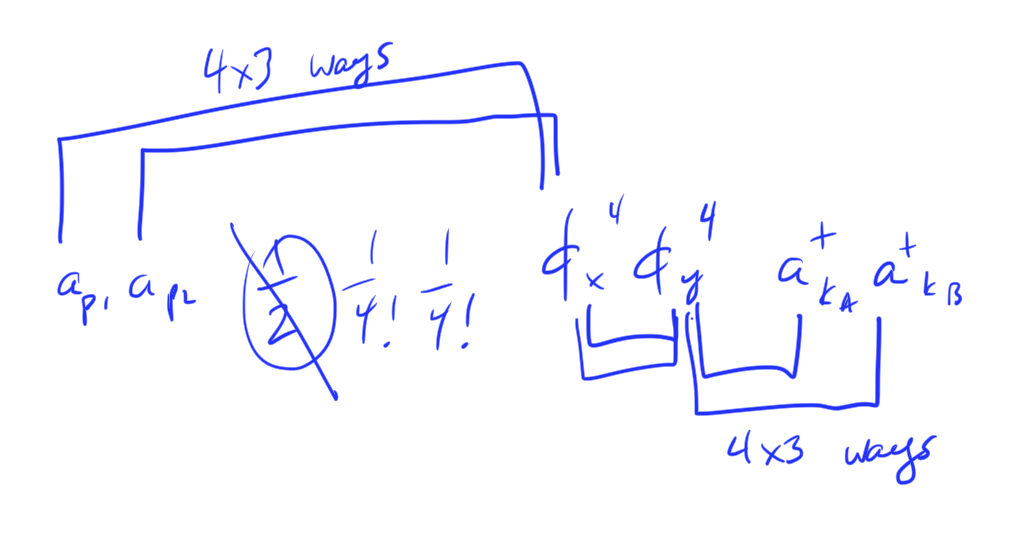 4×3 ways
a_{p1} a_{p2} 1/2 1/4! 1/4! ϕ_x^4 ϕ_y^4 a^+_{kA} a^+_{kB}
4×3 ways